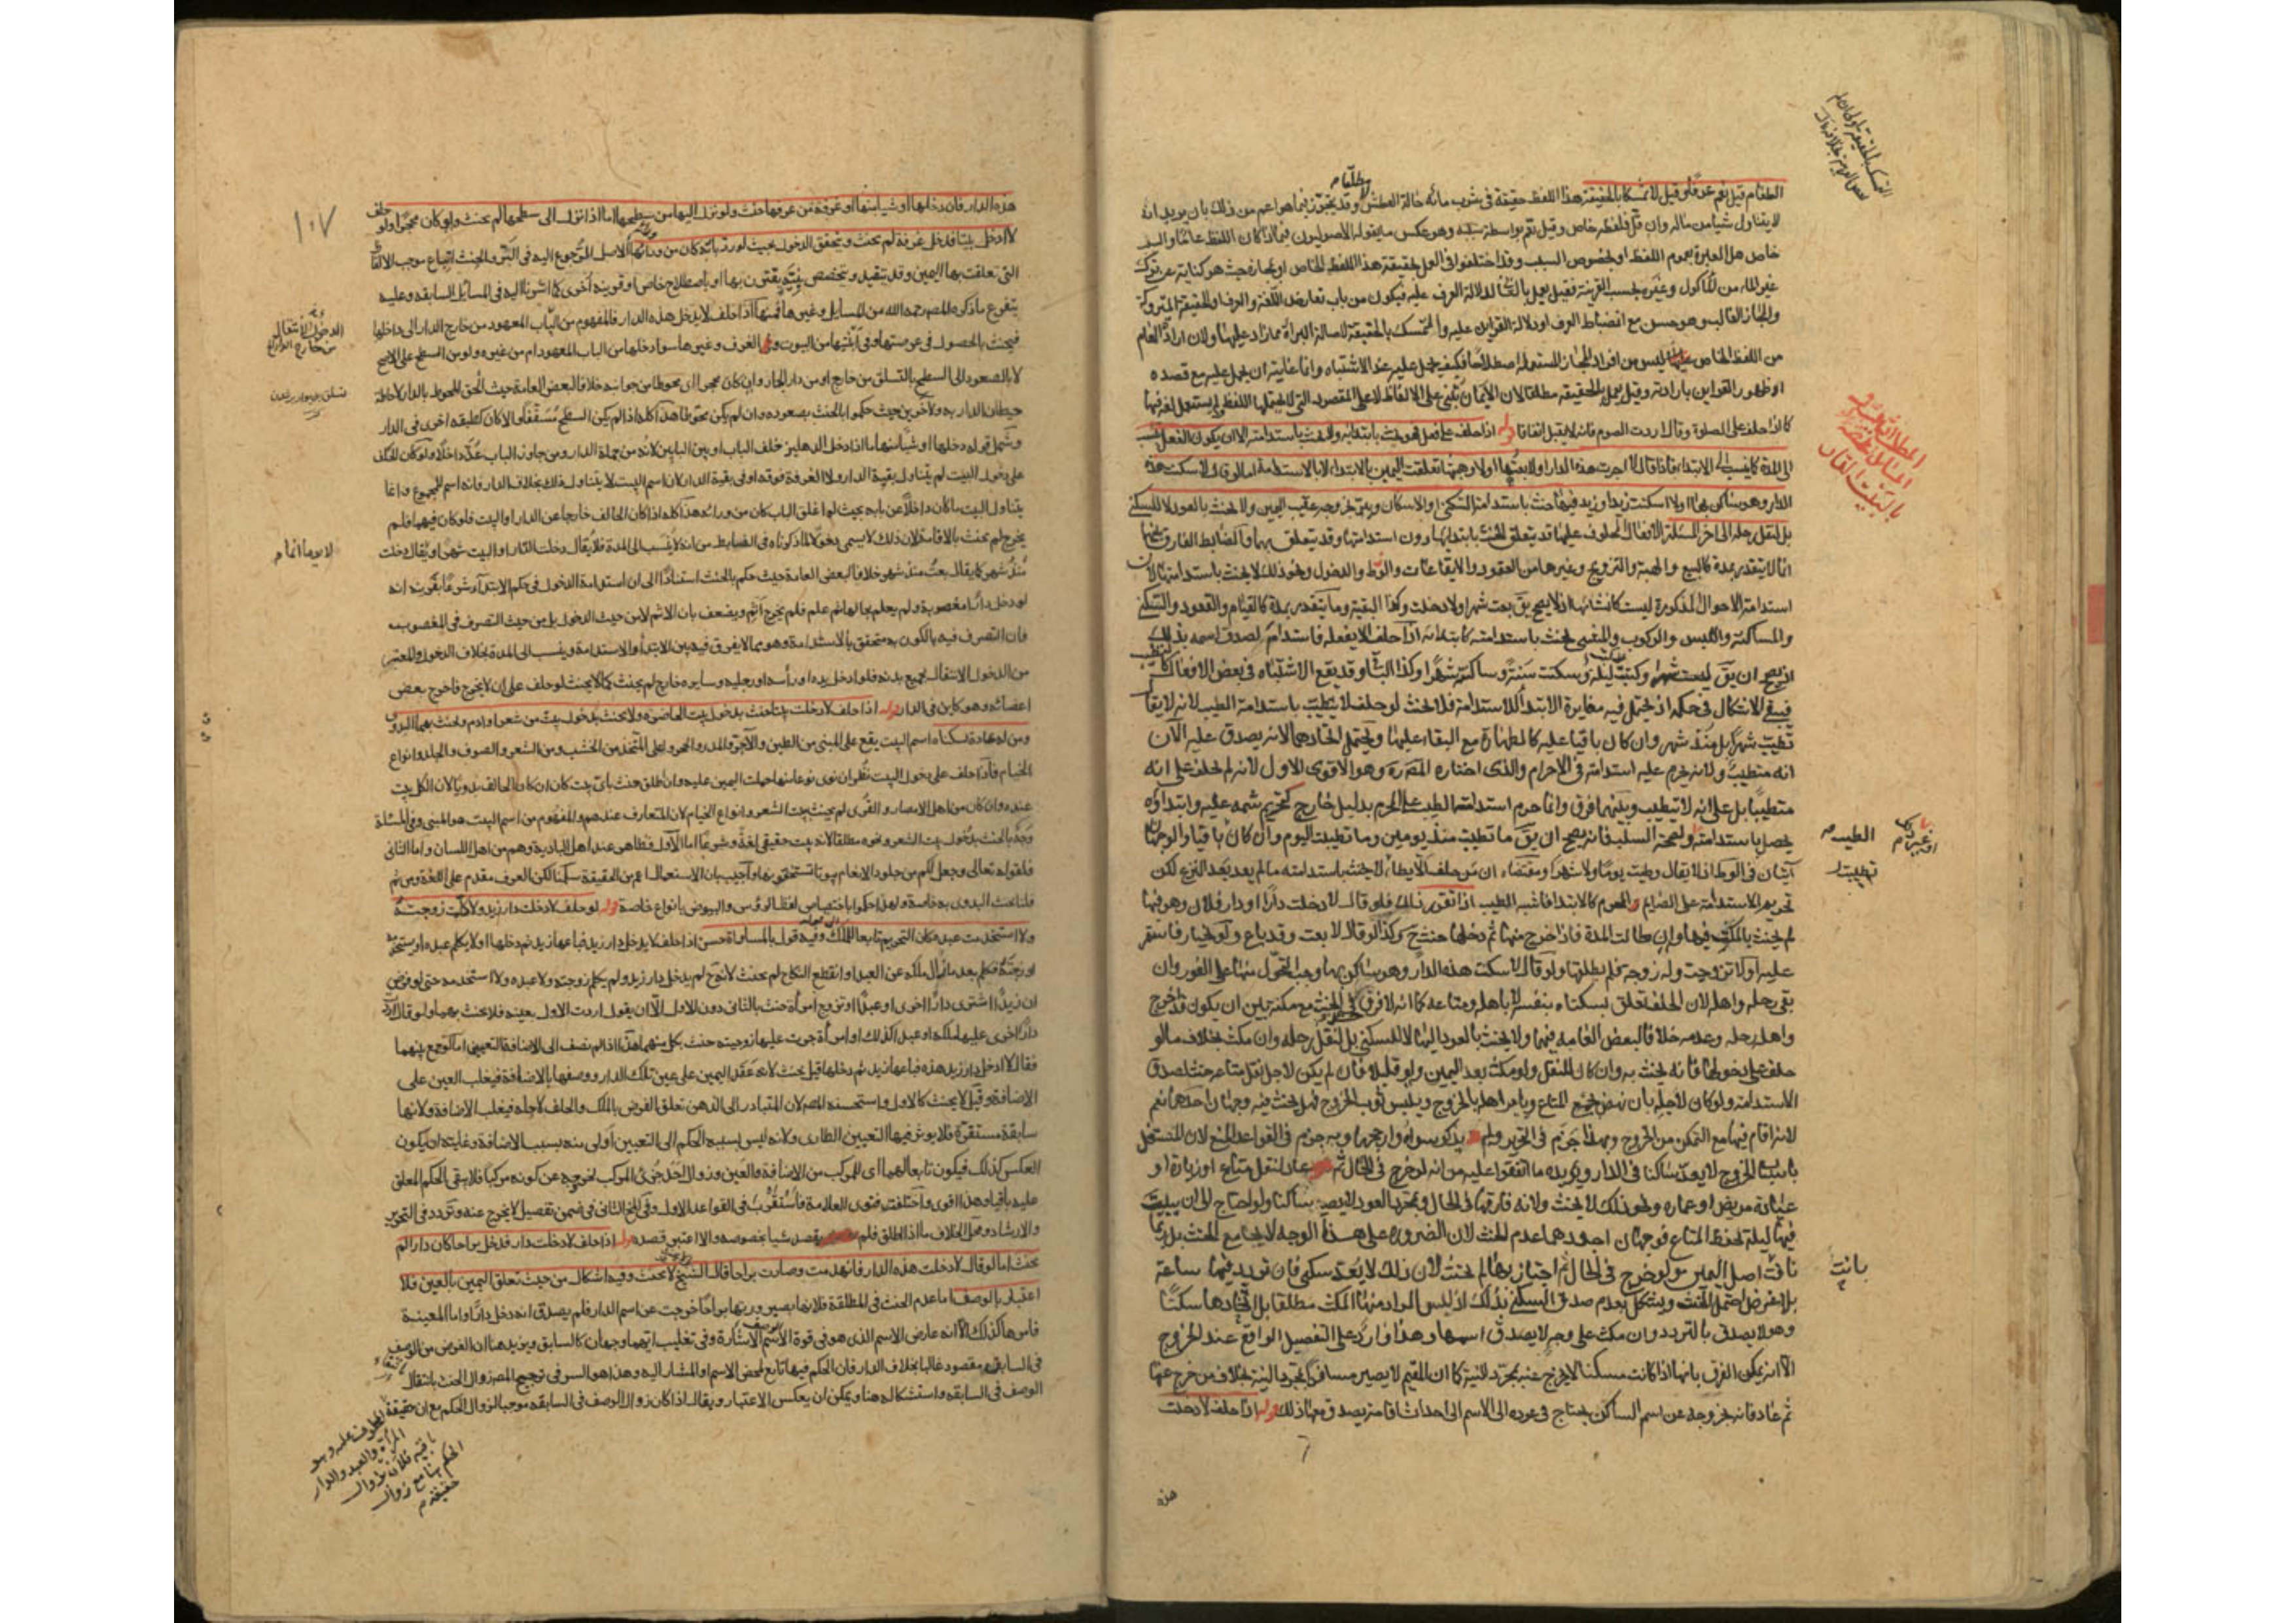 الطعام قيل نعم عرفا وقيل لا تمسكا بالحقيقة هذا اللفظ حقيقة في شرب مائه حالة العطش وقد يتجوز فيما هو اعم من ذلك بان يريد انه
لا يتناول شيا من ماله وان قل فلفظه خاص وقيل تعم بواسطة سببه وهو عكس ما يقوله الاصوليون فيما اذا كان اللفظ عاما والسبب
خاص هل العبرة بعموم اللفظ او بخصوص السبب وقد اختلفوا في العمل بحقيقة هذا اللفظ الخاص او مجازه حيث هو كناية عن ترك
غير الماء من المأكول وغيره بحسب القرينة فقيل يعمل بالثاني لدلالة العرف عليه فيكون من باب تعارض اللغة والعرف او الحقيقة المتروكة
والمجاز الغالب وهو حسن مع انضباط العرف او دلالة القراين عليه والا تمسك بالحقيقة لاصالة البراءة مما زاد عليها ولان ارادة العام
من اللفظ الخاص ليس من افراد المجاز المستعملة اصطلاحا فكيف يحمل عليه عند الاشتباه وانما غايته ان يحمل عليه مع قصده
او ظهور القراين بارادته وقيل يعمل بالحقيقة مطلقا لان الايمان تبنى على الالفاظ لا على المقصود التي لا يحتملها اللفظ ولم يستعمل لغة فيها
كما اذا حلف على الصلوة وقال اردت الصوم فانه لا يقبل اتفاقا قوله اذا حلف على فعل فهو يحنث بابتدائه ولا يحنث باستدامته الا ان يكون الفعل ينسب
الى المدة كما ينسب الى الابتداء فاذا قال لا اجرت هذه الدار او لا بعتها او لا وهبتها تعلقت اليمين بالابتداء لا بالاستدامة اما لو قال لا سكنت هذه
الدار وهو ساكن بها او لا اسكنت زيدا وزيد فيها حنث باستدامة السكنى او الاسكان ويبر بخروجه عقيب اليمين ولا يحنث بالعود لا للسكنى
بل لنقل رحله الى اخر المسئلة الافعال المحلوف عليها قد يتعلق الحنث بابتدائها دون استدامتها وقد يتعلق بهما والضابط الفارق بينهما
ان ما لا يتقدر بمدة كالبيع والهبة والتزويج وغيرها من العقود والايقاعات والوطى والدخول ونحو ذلك لا يحنث باستدامتها لان
استدامة الاحوال المذكورة ليست كانشائها اذ لا يصح ان يق بعت شهرا ولا دخلت وكذا البقية وما يتقدر بمدة كالقيام والقعود والسكنى
والمساكنة واللبس والركوب والمشي يحنث باستدامته كابتدائه اذا حلف لا يفعله فاستدام لصدق اسمه بذلك
اذ يصح ان يق لبست شهرا وركبت ليلة وسكنت سنة وساكنته شهرا وكذا الباقي وقد يقع الاشتباه في بعض الافعال كالتطيب
فيبقى الاشكال في حكمه اذ يحتمل فيه مغايرة الابتداء للاستدامة فلا يحنث لو حلف لا يتطيب باستدامة الطيب لانه لا يقال
تطيبت شهرا بل منذ شهر وان كان باقيا عليه كالطهارة مع البقاء عليها ويحتمل اتحادهما لانه يصدق عليه الآن
انه متطيب ولانه يحرم عليه استدامته في الاحرام والذي اختاره المصره وهو الاقوى الاول لانه لم يحلف على انه
متطيبا بل على انه لا يتطيب وبينهما فرق وانما حرم استدامة الطيب على المحرم بدليل خارج كتحريم شمه عليه وابتداؤه
يحصل باستدامته ولصحة السلب فانه يصح ان يق ما تطيبت منذ يومين وما تطيبت اليوم وان كان باقيا والوجهان
آتيان في الوطى اذ لا يقال وطئت يوما ولا شهرا ومقتضاه ان من حلف لا يطأ لا يحنث باستدامته ما لم يعد بعد النزع لكن
تحريم الاستدامة على الصايم والمحرم كالابتداء فاشبه الطيب اذا تقرر ذلك فلو قال لا دخلت دارا او دار فلان وهو فيها
لم يحنث بالمكث فيها وان طالت المدة فاذا خرج منها ثم دخلها حنث ح وكذا لو قال لا بعت وقد باع ولو بخيار فاستقر
عليه او لا تزوجت وله زوجة فلم يطلقها ولو قال لا سكنت هذه الدار وهو ساكن بها وجب التحول منها على الفور وان
بقي رحله واهله لان الحلف تعلق بسكناه بنفسه لا باهله ومتاعه كما انه لا فرق في الحنث مع مكثه بين ان يكون قد اخرج
واهله رحله وعدمه خلافا لبعض العامة فيهما ولا يحنث بالعود اليها لا للسكنى بل لنقل رحله وان مكث بخلاف ما لو
حلف على دخولها فانه يحنث به وان كان للنقل ولو مكث بعد اليمين ولو قليلا فان لم يكن لاجل نقل متاعه حنث لصدق
الاستدامة ولو كان لاجله بان نهض لجمع المتاع ويامر اهله بالخروج ويلبس ثوب الخروج فهل يحنث فيه وجهان احدهما نعم
لانه اقام فيها مع التمكن من الخروج وبهذا جزم في التحرير ولم يذكر سواه وارجحهما وبه جزم في القواعد المنع لان المشتغل
باسباب الخروج لا يعد ساكنا في الدار ويؤيده ما اتفقوا عليه من انه لو خرج في الحال ثم عاد لنقل متاع او زيارة او
عيادة مريض او عماره ونحو ذلك لا يحنث ولانه فارقها في الحال وبمجرد العود لا يصير ساكنا ولو احتاج الى ان يبيت
فيها ليلة لحفظ المتاع فوجهان اجودهما عدم الحنث لان الضرورة على هذا الوجه لا يجامع الحنث بل ربما
نافت اصل اليمين ولو خرج في الحال ثم اجتاز بها لم يحنث لان ذلك لا يعد سكنى فان تردد فيها ساعة
بلا غرض احتمل الحنث ويشكل بعدم صدق السكنى بذلك اذ ليس المراد منها المكث مطلقا بل اتخاذها سكنا
وهو لا يصدق بالتردد وان مكث على وجه لا يصدق اسمها وهذا وارد على التفصيل الواقع عند الخروج
الا انه يمكن الفرق بانها اذا كانت مسكنا لا يخرج عنه بمجرد النية كما ان المقيم لا يصير مسافرا بمجرد النية بخلاف من خرج عنها
ثم عاد فانه بخروجه عن اسم الساكن يحتاج في عوده الى الاسم الى احداث اقامة يصدق معها ذلك قوله اذا حلف لا دخلت
هذه
الطيب
تطيبت
بانت
١٠٧
هذه الدار فان دخلها او شيا منها او غرفة من غرفها حنث ولو نزل اليها من سطحها اما اذا نزل الى سطحها لم يحنث ولو كان محجرا ولو حلف
لا ادخل بيتا فدخل غرفة لم يحنث ويتحقق الدخول بحيث لو رد بابه كان من ورائه الاصل المرجوع اليه في البر والحنث اتباع موجب الالفاظ
التي تعلقت بها اليمين وقد يتقيد ويتخصص بنية يقترن بها او باصطلاح خاص او قرينة اخرى كما اشرنا اليه في المسائل السابقه وعليه
يتفرع ما ذكره المصر رحمه الله من المسايل وغيرها فمنها اذا حلف لا يدخل هذه الدار فالمفهوم من الباب المعهود من خارج الدار الى داخلها
فيحنث بالحصول في عرصتها وفي ابنيتها من البيوت والغرف وغيرها سوا دخلها من الباب المعهود ام من غيره ولو من السطح على الاصح
لا بالصعود الى السطح بالتسلق من خارج او من دار الجار وان كان محجرا اي محوطا من جوانبه خلافا لبعض العامة حيث الحق المحوط بالدار لاحاطة
حيطان الدار به ولآخرين حيث حكموا بالحنث بصعوده وان لم يكن محوطا هذا كله اذا لم يكن السطح مسقفا والا كان كطبقة اخرى في الدار
وشمل قوله دخلها او شيا منها ما اذا دخل الدهليز خلف الباب او بين البابين لانه من جملة الدار ومن جاوز الباب عد داخلا ولو كان الحلف
على دخول البيت لم يتناول بقية الدار ولا الغرفة فوقه او في بقية الدار لان اسم البيت لا يتناول ذلك بخلاف الدار فانه اسم للمجموع وانما
يتناول البيت ما كان داخلا عن بابه بحيث لو اغلق الباب كان من ورائه هذا كله اذا كان الحالف خارجا عن الدار والبيت فلو كان فيهما فلم
يخرج لم يحنث بالاقامة لان ذلك لا يسمى دخولا لما ذكرناه في الضابط من انه لا ينسب الى المدة فلا يقال دخلت الدار او البيت شهرا ويقال دخلت
منذ شهر كما يقال بعت منذ شهر خلافا لبعض العامة حيث حكم بالحنث استنادا الى ان استدامة الدخول في حكم الابتداء شرعا بقرينة انه
لو دخل دارا مغصوبة ولم يعلم بحالها ثم علم فلم يخرج اثم ويضعف بان الاثم لا من حيث الدخول بل من حيث التصرف في المغصوب
فان التصرف فيه بالكون به متحقق بالاستدامة وهو مما لا يفرق فيه بين الابتداء والاستدامة وينسب الى المدة بخلاف الدخول والمعتبر
من الدخول الانتقال بجميع بدنه فلو ادخل يده او رأسه او رجليه وسايره خارج لم يحنث كما لا يحنث لو حلف على ان لا يخرج فاخرج بعض
اعضائه وهو كاين في الدار قوله اذا حلف لا دخلت بيتا حنث بدخول بيت الحاضره ولا يحنث بدخول بيت من شعر او ادم ويحنث بهما البدوى
ومن له عادة بسكناه اسم البيت يقع على المبنى من الطين والآجر والمدر والحجر وعلى المتخذ من الخشب ومن الشعر والصوف والجلد وانواع
الخيام فاذا حلف على دخول البيت نظر ان نوى نوعا منها حملت اليمين عليه وان اطلق حنث باى بيت كان ان كان الحالف بدويا لان الكل بيت
عنده وان كان من اهل الامصار والقرى لم يحنث ببيت الشعر وانواع الخيام لان المتعارف عندهم والمفهوم من اسم البيت هو المبنى وفي المسئلة
وجه بالحنث بدخول بيت الشعر ونحوه مطلقا لانه بيت حقيقي لغة وشرعا اما الاول فظاهر عند اهل البادية وهم من اهل اللسان واما الثاني
فلقوله تعالى وجعل لكم من جلود الانعام بيوتا تستخفونها واجيب بان الاستعمال اعم من الحقيقة سلمنا لكن العرف مقدم على اللغة ومن ثم
قلنا يحنث البدوي به خاصة ولهذا حكموا باختصاص لفظ الرؤس والبيوض بانواع خاصة قوله لو حلف لا دخلت دار زيد ولا كلمت زوجته
ولا استخدمت عبده كان التحريم تابعا للملك وفيه قول بالمساواة حسن اذا حلف لا يدخل دار زيد فباعها زيد ثم دخلها او لا يكلم عبده او يستخدمه
او زوجته فكلم بعد ما زال ملكه عن العبد وانقطع النكاح لم يحنث لانه ح لم يدخل دار زيد ولم يكلم زوجته ولا عبده ولا استخدمه حتى لو فرض
ان زيدا اشترى دارا اخرى او عبدا او تزوج امرأة حنث بالثاني دون الاول الا ان يقول اردت الاول بعينه فلا يحنث بهما ولو قال اردت
دارا جرى عليها ملكه او عبدا كذلك او امرأة جرت عليها زوجيته حنث بكل منهما هذا اذا لم يضف الى الاضافة التعيين اما لو جمع بينهما
فقال لا ادخل دار زيد هذه فباعها زيد ثم دخلها قيل يحنث لانه عقد اليمين على عين تلك الدار ووصفها بالاضافة فيغلب العين على
الاضافة وقيل لا يحنث كالاول واستحسنه المصر لان المتبادر الى الذهن تعلق الغرض بالملك والحلف لاجله فيغلب الاضافة ولانها
سابقة مستقرة فلا يؤثر فيها التعيين الطاري ولانه ليس نسبة الحكم الى التعيين اولى منه بسبب الاضافة وغايته ان يكون
العكس كذلك فيكون تابعا لهما اي للمركب من الاضافة والعين وزوال احد جزئي المركب يخرجه عن كونه مركبا فلا يبقى الحكم المعلق
عليه باقيا وهذا اقوى واختلفت فتوى العلامة فاستقرب في القواعد الاول وفي المخ الثاني في ضمن تفصيل لا يخرج عنه وتردد في التحرير
والارشاد ومحل الخلاف ما اذا اطلق فلم يقصد شيا بخصوصه والا اعتبر قصده قوله اذا حلف لا دخلت دار فدخل براحا كان دارا لم
يحنث اما لو قال لا دخلت هذه الدار فانهدمت وصارت براحا قال الشيخ لا يحنث وفيه اشكال من حيث تعلق اليمين بالعين فلا
اعتبار بالوصف اما عدم الحنث في المطلقة فلانها بصيرورتها براحا خرجت عن اسم الدار فلم يصدق انه دخل دارا واما المعينة
فامرها كذلك الا انه عارض الاسم الذي هو في قوة الوصف الاشارة وفي تغليب ايهما وجهان كالسابق ويزيد هنا ان الغرض من الوصف
في السابقه مقصود غالبا بخلاف الدار فان الحكم فيها تابع لمحض الاسم والمشار اليه وهذا هو السر في ترجيح المصر زوال الحنث بانتفاء
الوصف في السابقه واستشكاله هنا ويمكن ان يعكس الاعتبار ويقال اذا كان زوال الوصف في السابقه موجبا لزوال الحكم مع ان حقيقة
المحلوف عليه وهو
المرأة والعبد والدار
باقية فلان يزول
الحكم هنا مع زوال
حقيقته